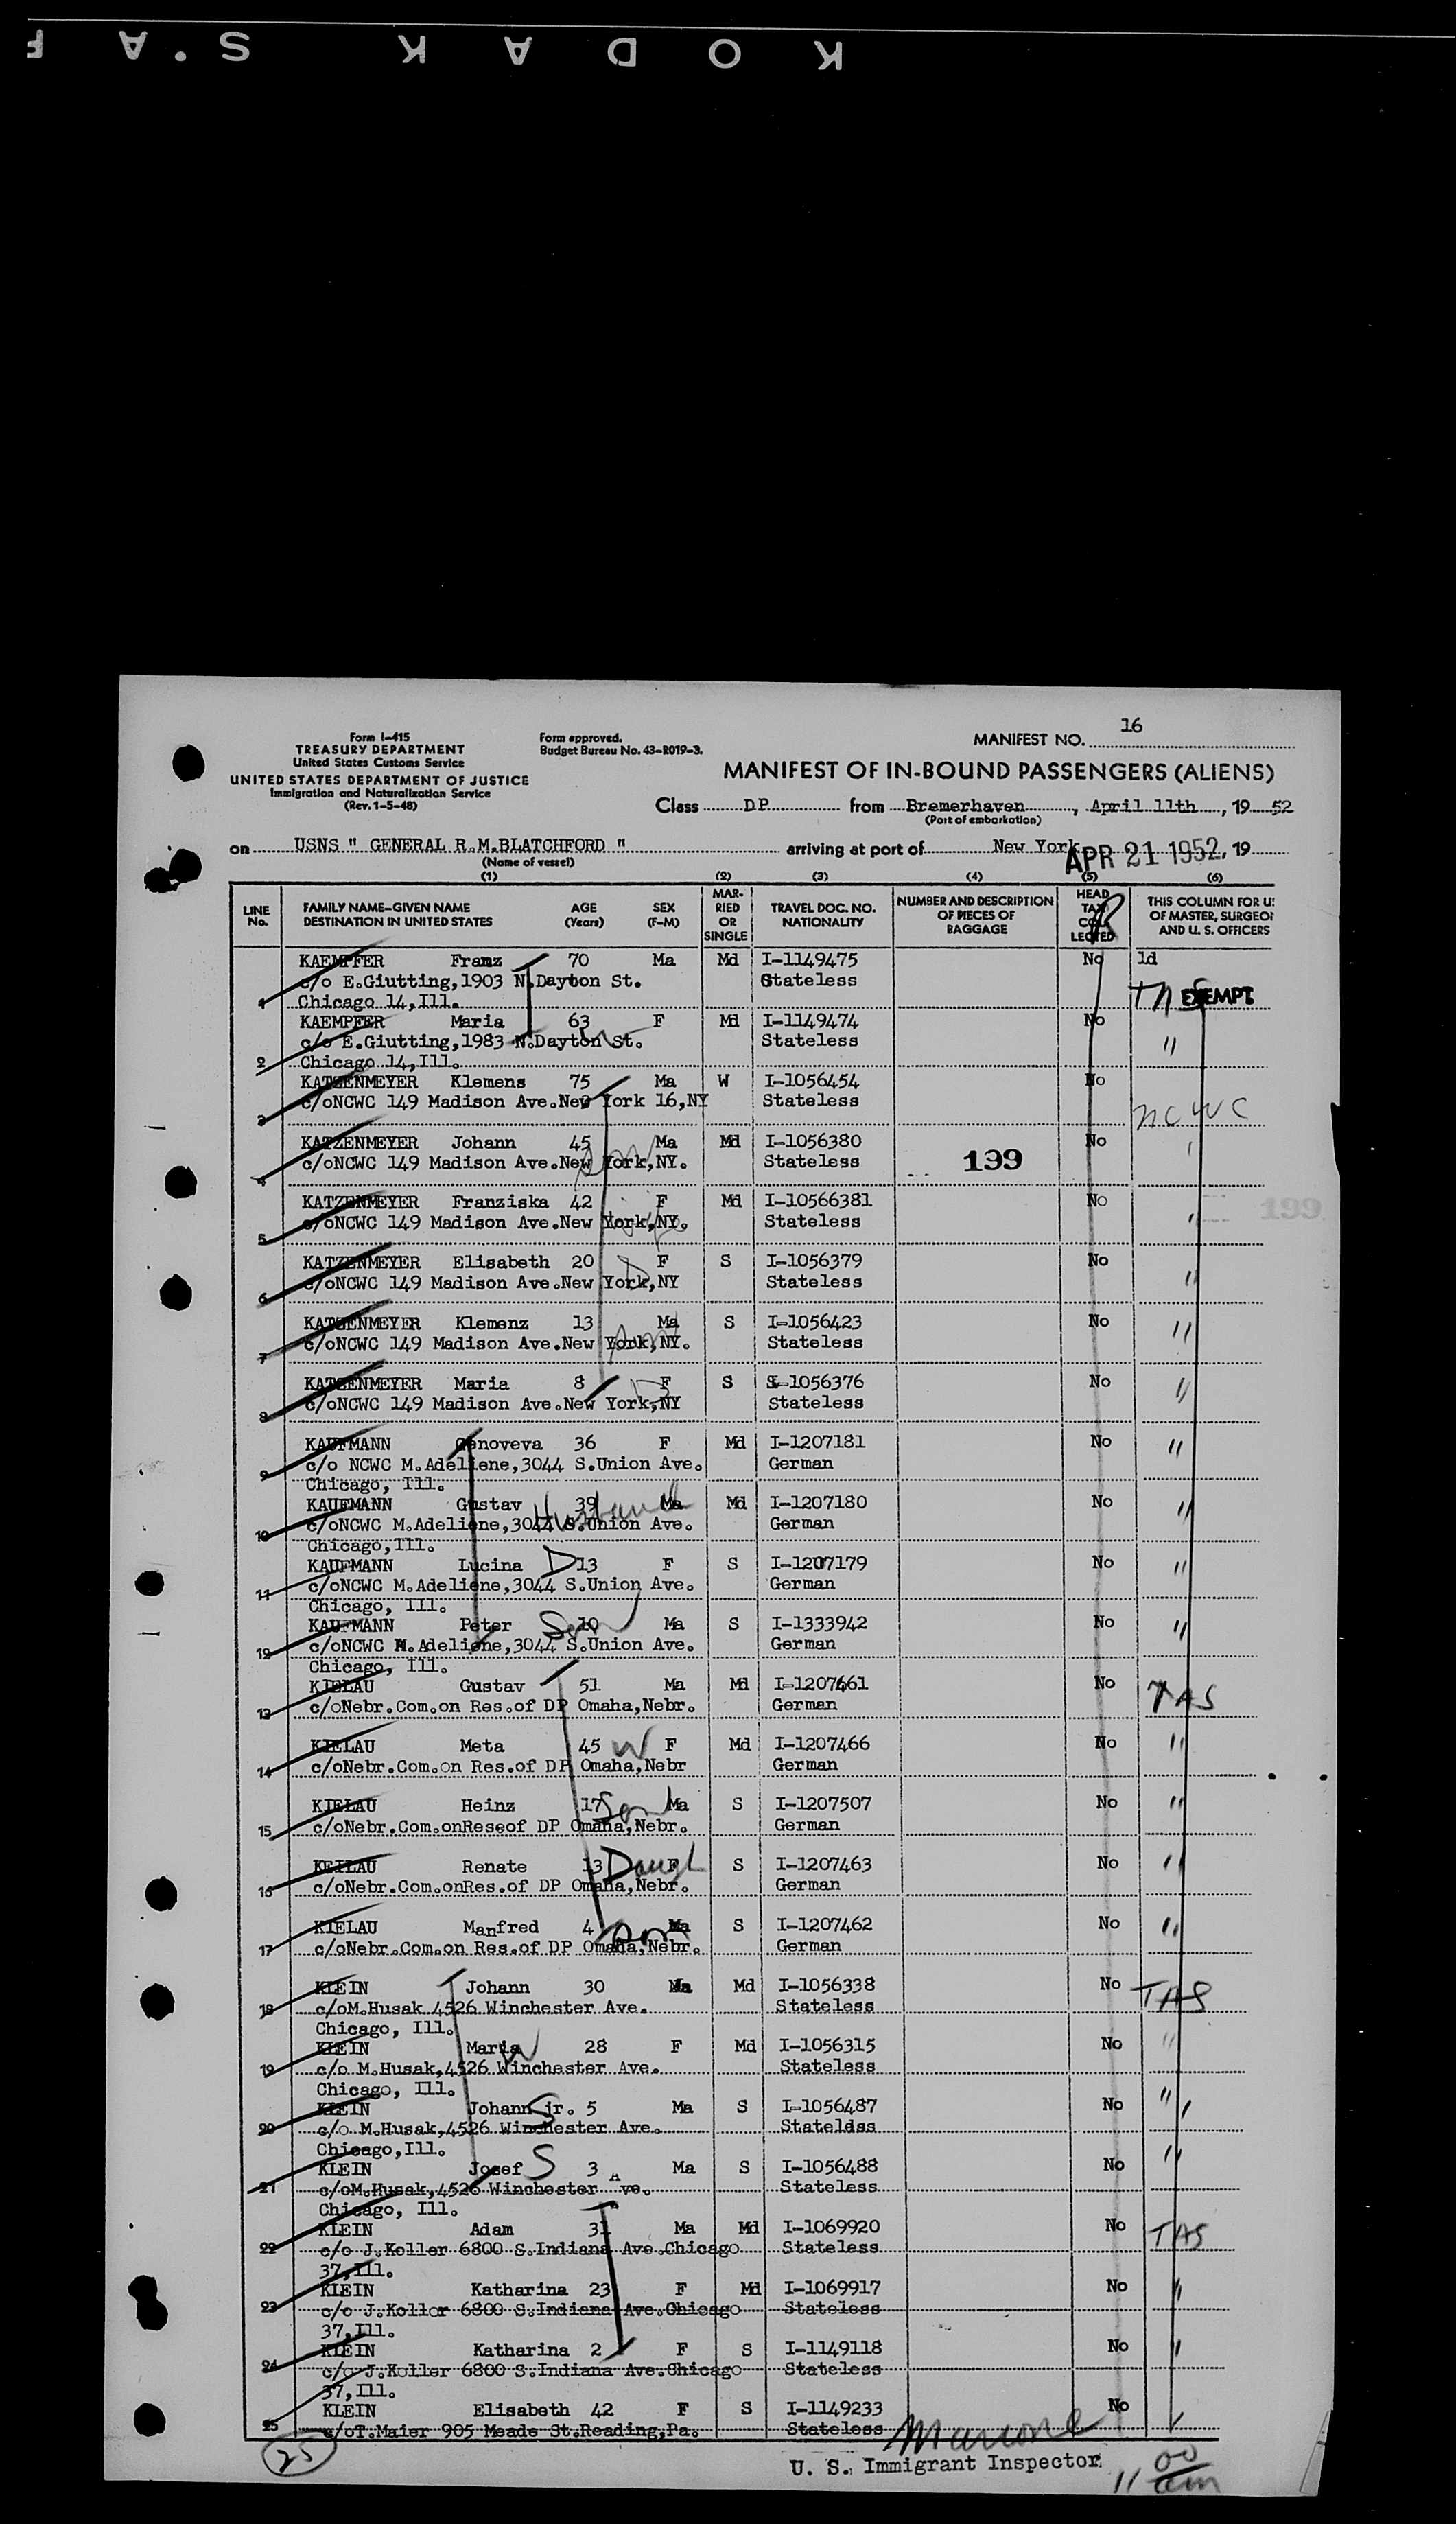 KODAK S.A F
16
Form I-415
TREASURY DEPARTMENT
United States Customs Service
UNITED STATES DEPARTMENT OF JUSTICE
Immigration and Naturalization Service
(Rev. 1-5-48)
Form approved.
Budget Bureau No. 43-R019-3.
MANIFEST NO.
MANIFEST OF IN-BOUND PASSENGERS (ALIENS)
Class DP from Bremerhaven, April 11th, 19 52
(Port of embarkation)
on USNS " GENERAL R.M.BLATCHFORD " arriving at port of New York APR 21 1952, 19
(Name of vessel)
(1) (2) (3) (4) (5) (6)
LINE No. FAMILY NAME-GIVEN NAME DESTINATION IN UNITED STATES AGE (Years) SEX (F-M) MARRIED OR SINGLE TRAVEL DOC. NO. NATIONALITY NUMBER AND DESCRIPTION OF PIECES OF BAGGAGE HEAD TAX COLLECTED THIS COLUMN FOR U: OF MASTER, SURGEON AND U. S. OFFICERS
KAEMPFER Franz 70 Ma Md I-1149475 No ld
c/o E.Giutting,1903 N.Dayton St. Stateless
1 Chicago 14,Ill. EXEMPT
KAEMPFER Maria 63 F Md I-1149474 No
c/o E.Giutting,1983 N.Dayton St. Stateless "
2 Chicago 14,Ill.
KATZENMEYER Klemens 75 Ma W I-1056454 No
3 c/oNCWC 149 Madison Ave.New York 16,NY Stateless NCWC
KATZENMEYER Johann 45 Ma Md I-1056380 No
4 c/oNCWC 149 Madison Ave.New York,NY. Stateless 199
KATZENMEYER Franziska 42 F Md I-10566381 No
5 c/oNCWC 149 Madison Ave.New York,NY. Stateless " 199
KATZENMEYER Elisabeth 20 D F S I-1056379 No
6 c/oNCWC 149 Madison Ave.New York,NY Stateless "
KATZENMEYER Klemenz 13 Ma S I-1056423 No
7 c/oNCWC 149 Madison Ave.New York,NY. Stateless "
KATZENMEYER Maria 8 D F S I-1056376 No
8 c/oNCWC 149 Madison Ave.New York,NY Stateless "
KAUFMANN Genoveva 36 F Md I-1207181 No "
9 c/o NCWC M.Adeliene,3044 S.Union Ave. German
Chicago, Ill.
KAUFMANN Gustav 39 Husband Ma Md I-1207180 No "
10 c/oNCWC M.Adeliene,3044 S.Union Ave. German
Chicago,Ill.
KAUFMANN Lucina D 13 F S I-1207179 No "
11 c/oNCWC M.Adeliene,3044 S.Union Ave. German
Chicago, Ill.
KAUFMANN Peter Son 10 Ma S I-1333942 No "
12 c/oNCWC M.Adeliene,3044 S.Union Ave. German
Chicago, Ill.
KIELAU Gustav 51 Ma Md I-1207461 No TAS
13 c/oNebr.Com.on Res.of DP Omaha,Nebr. German
KIELAU Meta 45 W F Md I-1207466 No "
14 c/oNebr.Com.on Res.of DP Omaha,Nebr German
KIELAU Heinz 17 Son Ma S I-1207507 No "
15 c/oNebr.Com.onReseof DP Omaha,Nebr. German
KEILAU Renate 13 Daugh F S I-1207463 No "
16 c/oNebr.Com.onRes.of DP Omaha,Nebr. German
KIELAU Manfred 4 Son Ma S I-1207462 No "
17 c/oNebr.Com.on Res.of DP Omaha,Nebr. German
KLEIN Johann 30 Ma Md I-1056338 No TAS
18 c/oM.Husak 4526 Winchester Ave. Stateless
Chicago, Ill.
KLEIN Maria W 28 F Md I-1056315 No "
19 c/o M.Husak,4526 Winchester Ave. Stateless
Chicago, Ill.
KLEIN Johann jr. S 5 Ma S I-1056487 No "
20 c/o M.Husak,4526 Winchester Ave. Stateldss
Chicago,Ill.
KLEIN Josef S 3 Ma S I-1056488 No "
21 c/oM.Husak,4526 Winchester Ave. Stateless
Chicago, Ill.
KLEIN Adam 31 Ma Md I-1069920 No TAS
22 c/o J.Koller 6800 S.Indiana Ave.Chicago Stateless
37,Ill.
KLEIN Katharina 23 F Md I-1069917 No "
23 c/o J.Koller 6800 S.Indiana Ave.Chicago Stateless
37,Ill.
KLEIN Katharina 2 F S I-1149118 No "
24 c/o J.Koller 6800 S.Indiana Ave.Chicago Stateless
37,Ill.
KLEIN Elisabeth 42 F S I-1149233 No
25 c/oT.Maier 905 Meade St.Reading,Pa. Stateless
25
U. S. Immigrant Inspector
11 00 am